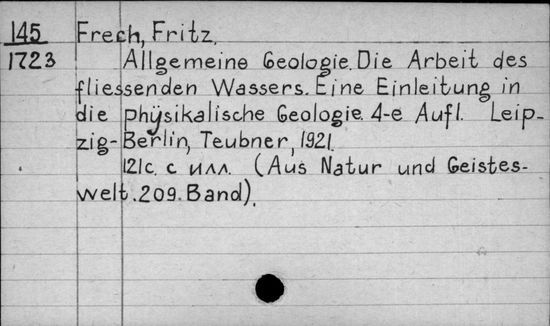 145 Frech, Fritz.
1723 Allgemeine Geologie. Die Arbeit des
fliessenden Wassers. Eine Einleitung in
die physikalische Geologie. 4-e Aufl. Leip-
zig-Berlin, Teubner, 1921.
121с. с илл. (Aus Natur und Geistes-
welt. 209. Band).